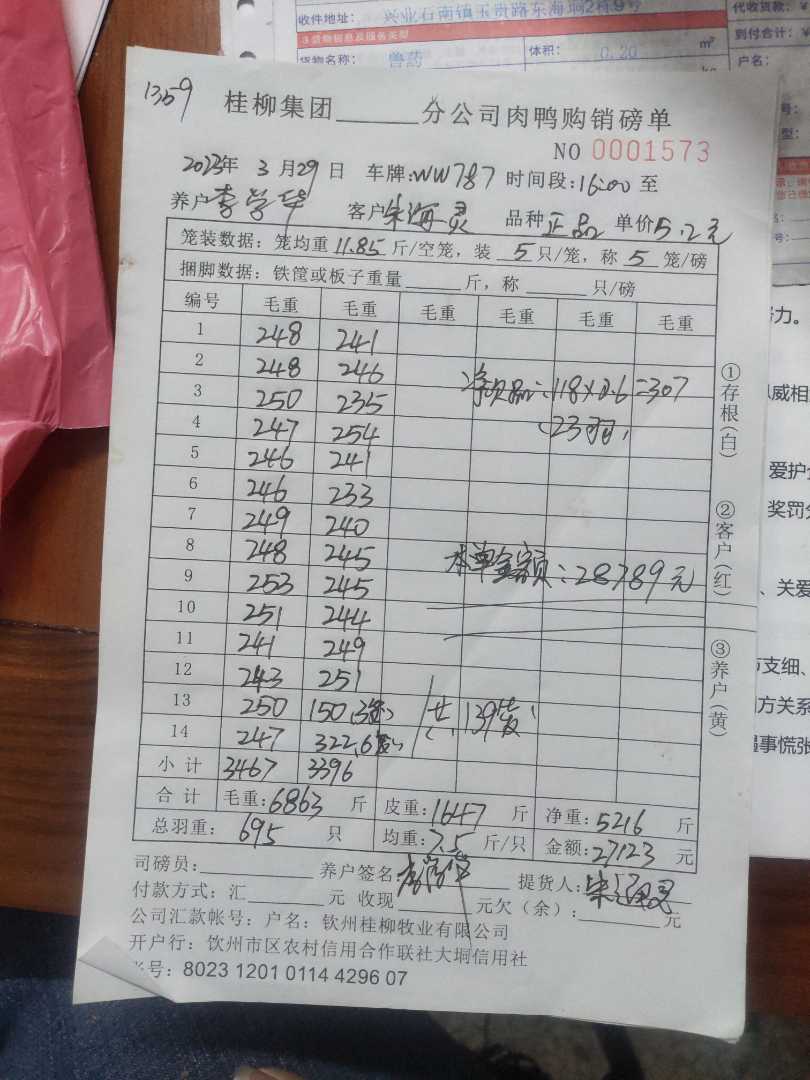 收件地址： 兴业石南镇玉贵路东海垌2栋9号 代收货款：¥
3 货物信息及服务类型 到付合计：¥
货物名称： 兽药 体积： 0.20 m³ 户名：
桂柳集团______分公司肉鸭购销磅单
NO 0001573
2023年 3 月 29 日 车牌：WW787 时间段：16:00 至
养户 李学华 客户 朱海灵 品种 正品 单价 5.2元
笼装数据：笼均重 11.85 斤/空笼，装 5 只/笼，称 5 笼/磅
捆脚数据：铁筐或板子重量______斤，称______只/磅
编号 毛重 毛重 毛重 毛重 毛重 毛重
1 248 241
2 248 246
3 250 235 净次品：118×2.6=307
4 247 254 (23羽)
5 246 241
6 246 233
7 249 240
8 248 245 本单金额：28789元
9 253 245
10 251 244
11 241 249
12 243 251
13 250 150 139笼
14 247 322
小计 3467 3396
合计 毛重：6863 斤 皮重：1647 斤 净重：5216 斤
总羽重： 695 只 均重：7.5 斤/只 金额：27123 元
司磅员：______ 养户签名 提货人：
付款方式：汇______元 收现______元欠（余）：______元
公司汇款帐号：户名：钦州桂柳牧业有限公司
开户行：钦州市区农村信用合作联社大垌信用社
号：8023 1201 0114 4296 07
①存根(白)
②客户(红)
③养户(黄)
努力。
以威相
爱护
奖罚分
、关爱
支细、
方关系
遇事慌张